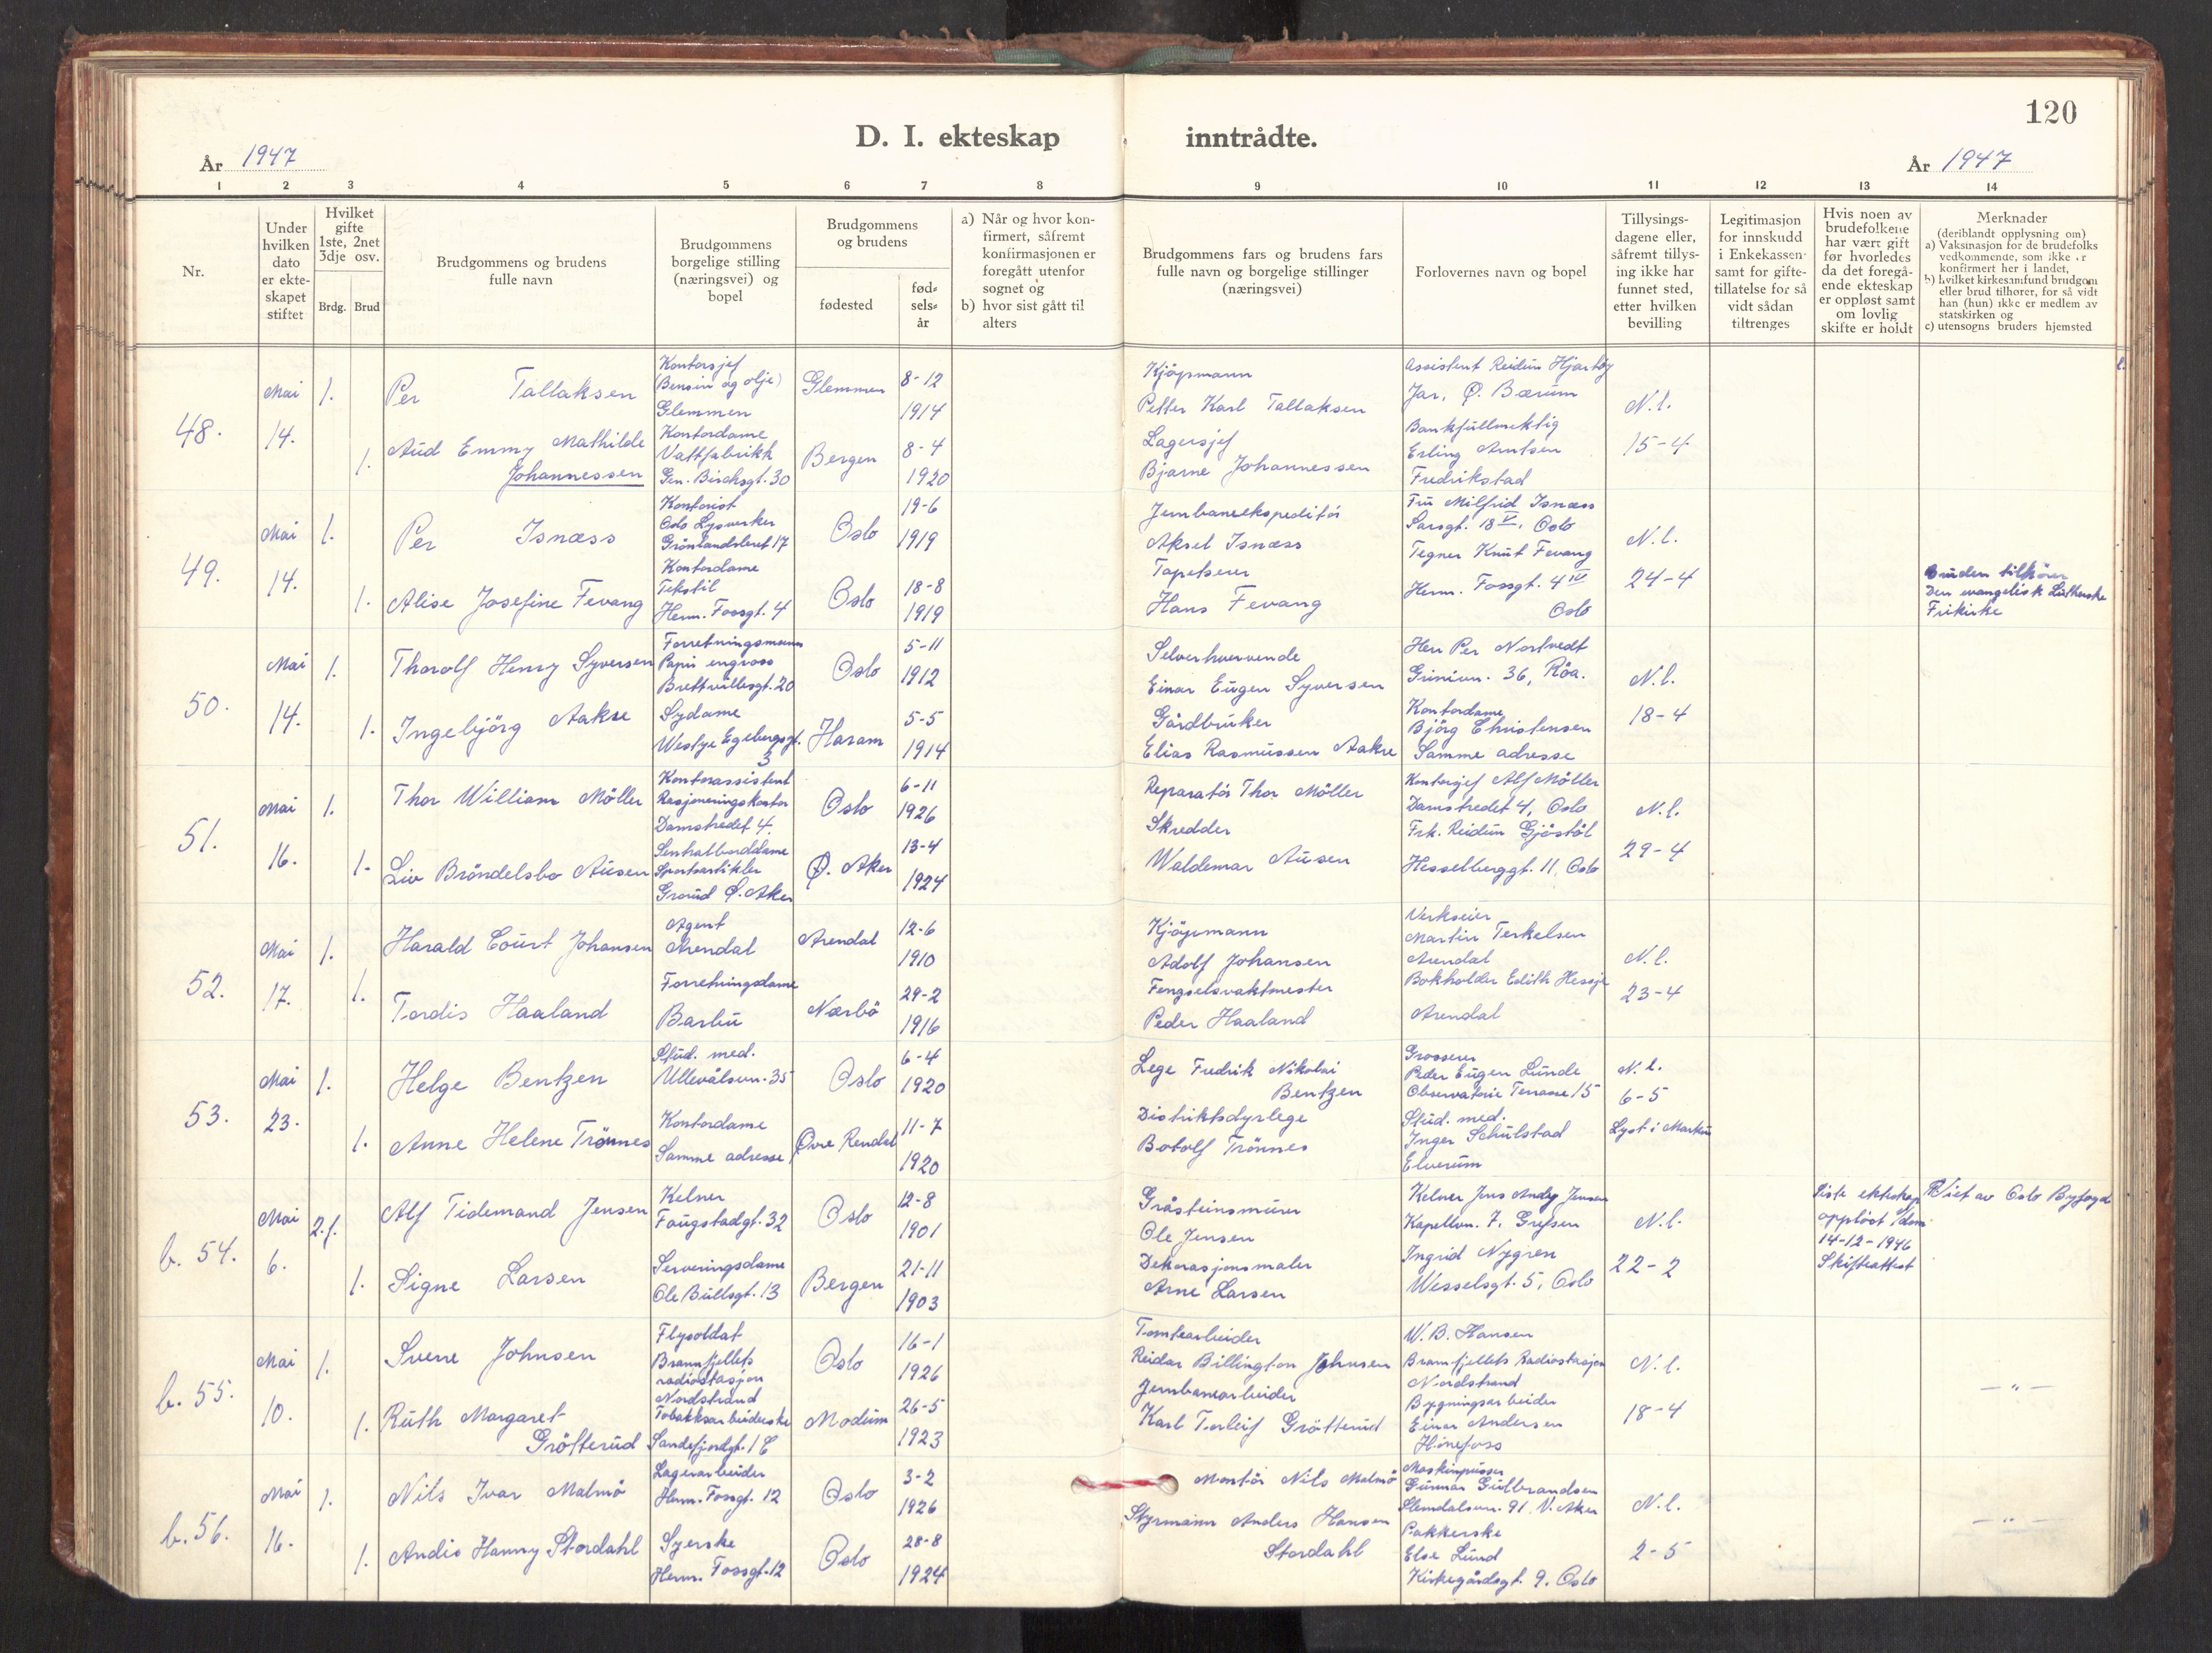 120
D. I. ekteskap inntrådte.
År 1947
År 1947
1 2 3 4 5 6 7 8 9 10 11 12 13 14
Nr.
Under
hvilken
dato
er ekte-
skapet
stiftet
Hvilket
gifte
1ste, 2net
3dje osv.
Brdg. Brud
Brudgommens og brudens
fulle navn
Brudgommens
borgelige stilling
(næringsvei) og
bopel
Brudgommens
og brudens
fødested
fød-
sels-
år
a) Når og hvor kon-
firmert, såfremt
konfirmasjonen er
foregått utenfor
sognet og
b) hvor sist gått til
alters
Brudgommens fars og brudens fars
fulle navn og borgelige stillinger
(næringsvei)
Forlovernes navn og bopel
Tillysings-
dagene eller,
såfremt tillys-
ing ikke har
funnet sted,
etter hvilken
bevilling
Legitimasjon
for innskudd
i Enkekassen
samt for gifte-
tillatelse for så
vidt sådan
tiltrenges
Hvis noen av
brudefolkene
har vært gift
før hvorledes
da det foregå-
ende ekteskap
er oppløst samt
om lovlig
skifte er holdt
Merknader
(deriblandt opplysning om)
a) Vaksinasjon for de brudefolks
vedkommende, som ikke er
konfirmert her i landet,
b) hvilket kirkesamfund brudgom
eller brud tilhører, for så vidt
han (hun) ikke er medlem av
statskirken og
c) utensogns bruders hjemsted
48.
Mai
14.
1.
Per Tallaksen
Kontorsjef
(Bensin og olje)
Glemmen
Glemmen
8-12
1914
1.
Aud Emmy Mathilde
Johannessen
Kontordame
Vattfabrikk
Gen. Birchsgt. 30
Bergen
8-4
1920
Kjöpmann
Petter Karl Tallaksen
Lagersjef
Bjarne Johannessen
Assistent Reidun Hjartøy
Jar, Ø. Bærum
Bankfullmektig
Erling Arntsen
Fredrikstad
N.l.
15-4
49.
Mai
14.
1.
Per Isnæss
Kontorist
Oslo Lysverker
Grönlandsleret 17
Oslo
19-6
1919
1.
Alise Josefine Fevang
Kontordame
Tekstil
Herm. Fossgt. 4
Oslo
18-8
1919
Jernbaneekspeditör
Aksel Isnæss
Tapetserer
Hans Fevang
Fru Milfrid Isnæss
Sarsgt. 18 V, Oslo
Tegner Knut Fevang
Herm. Fossgt. 4 IV
Oslo
N.l.
24-4
Bruden tilhörer
Den evangelisk Lutherske
Frikirke
50.
Mai
14.
1.
Thorolf Henry Syversen
Forretningsmann
Papir engross
Brettvillesgt. 20
Oslo
5-11
1912
1.
Ingebjörg Aakre
Sydame
Westye Egebergsgt.
3
Haram
5-5
1914
Selverhvervende
Einar Eugen Syversen
Gårdbruker
Elias Rasmussen Aakre
Herr Per Nortvedt
Grinivn. 36, Röa.
Kontordame
Björg Christensen
Samme adresse
N.l.
18-4
51.
Mai
16.
1.
Thor William Möller
Kontorassistent
Rasjoneringskontor
Damstredet 4.
Oslo
6-11
1926
1.
Liv Bröndelsbo Ausen
Sentralborddame
Sportsartikler
Grorud Ø. Aker
Ø. Aker
13-4
1924
Reparatör Thor Möller
Skredder
Waldemar Ausen
Kontorsjef Alf Möller
Damstredet 4, Oslo
Frk. Reidun Gjöstöl
Hesselberggt. 11, Oslo
N.l.
29-4
52.
Mai
17.
1.
Harald Court Johansen
Agent
Arendal
Arendal
12-6
1910
1.
Tordis Haaland
Forretningsdame
Barbu
Nærbö
29-2
1916
Kjöpmann
Adolf Johansen
Fengselsvaktmester
Peder Haaland
Verkseier
Martin Terkelsen
Arendal
Bokholder Edith Hessje
Arendal
N.l.
23-4
53.
Mai
23.
1.
Helge Bentzen
Stud. med.
Ullevålsvn. 35
Oslo
6-4
1920
1.
Anne Helene Trönnes
Kontordame
Samme adresse
Øvre Rendal
11-7
1920
Lege Fredrik Nikolai
Bentzen
Distriktsdyrlege
Botolf Trönnes
Grosserer
Peder Eugen Lunde
Observatorie Terrasse 15
Stud. med.
Inger Schulstad
Elverum
N.l.
6-5
Lyst i Markus
b. 54.
Mai
6.
2.f.
Alf Tidemand Jensen
Kelner
Faugstadgt. 32
Oslo
12-8
1901
1.
Signe Larsen
Serveringsdame
Ole Bullsgt. 13
Bergen
21-11
1903
Gråsteinsmurer
Ole Jensen
Dekorasjonsmaler
Arne Larsen
Kelner Jens Andry Jensen
Kapellvn. 7. Grefsen
Ingrid Nygren
Wesselsgt. 5, Oslo
N.l.
22-2
Siste ekteskap
opplöst dom
14-12-1946
Skifteattest
Viet av Oslo Byfogd
b. 55.
Mai
10.
1.
Sverre Johnsen
Flysoldat
Brannfjellets
radiostasjon
Nordstrand
Oslo
16-1
1926
1.
Ruth Margaret
Gröfterud
Tobakksarbeiderske
Sandefjordgt. 1 C
Modum
26-5
1923
Tomtearbeider
Reidar Billington Johnsen
Jernbanearbeider
Karl Torleif Gröfterud
W. B. Hansen
Brannfjellets Radiostasjon
Nordstrand
Bygningsarbeider
Einar Andersen
Hönefoss
N.l.
18-4
— " —
b. 56.
Mai
16.
1.
Nils Ivar Malmö
Lagerarbeider
Herm. Fossgt. 12
Oslo
3-2
1926
1.
Andis Hanny Stordahl
Syerske
Herm. Fossgt. 12
Oslo
28-8
1924
Montör Nils Malmö
Styrmann Anders Hansen
Stordahl
Maskinpusser
Gunnar Gulbrandsen
Slemdalsvn. 91. V. Aker
Pakkerske
Else Lund
Kirkegårdsgt. 9. Oslo
N.l.
2-5
— " —